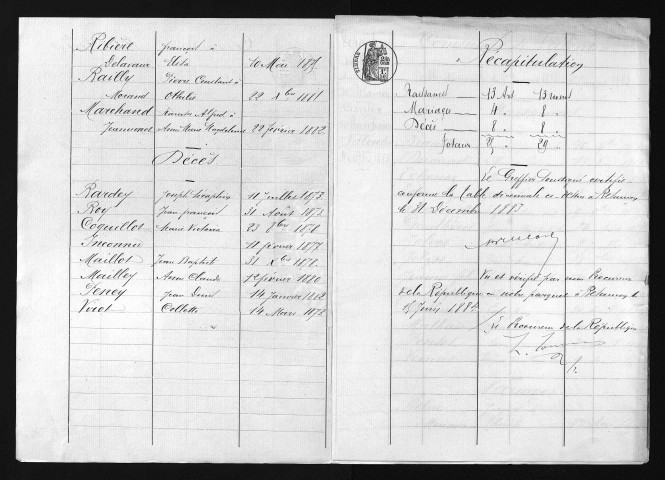 Ribière François à
Delavaux Elisa 10 Mai 187
Railly Pierre Constant à
Morand Othilie 22 Xbre 1881
Marchand Alfred à
Jeannenet Anne Marie Magdeleine 22 février 1882
Décès
Rardey Joseph Séraphin 11 Juillet 1873
Roy Jean françois 31 Août 1873
Coquillot Marie Victoria 23 8bre 1878
Inconnu 11 février 1879
Maillot Jean Baptiste 31 Xbre 1878
Mailley Anne Claude 12 février 1880
Peney Jean Denis 14 Janvier 1882
Viret Collette 14 Mars 1873
Récapitulation
Naissances 13 Art 13 noms
Mariages 4 8
Décès 8 8
Totaux 25 29
Le Greffier Soussigné certifie
conforme la table décennale ci-dessus à
le 31 Décembre 1883
Vu et vérifié par nous Procureur
de la République en notre parquet à
Juin 188
Le Procureur de la République